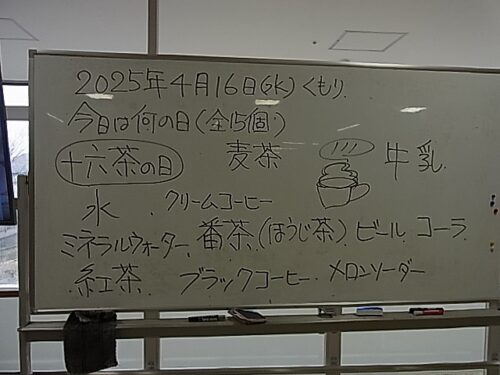 2025年4月16日(水)くもり.
今日は何の日(全15個)
十六茶の日 麦茶 牛乳.
水 . クリームコーヒー
ミネラルウォーター. 番茶.(ほうじ茶). ビール. コーラ
紅茶. ブラックコーヒー. メロンソーダー